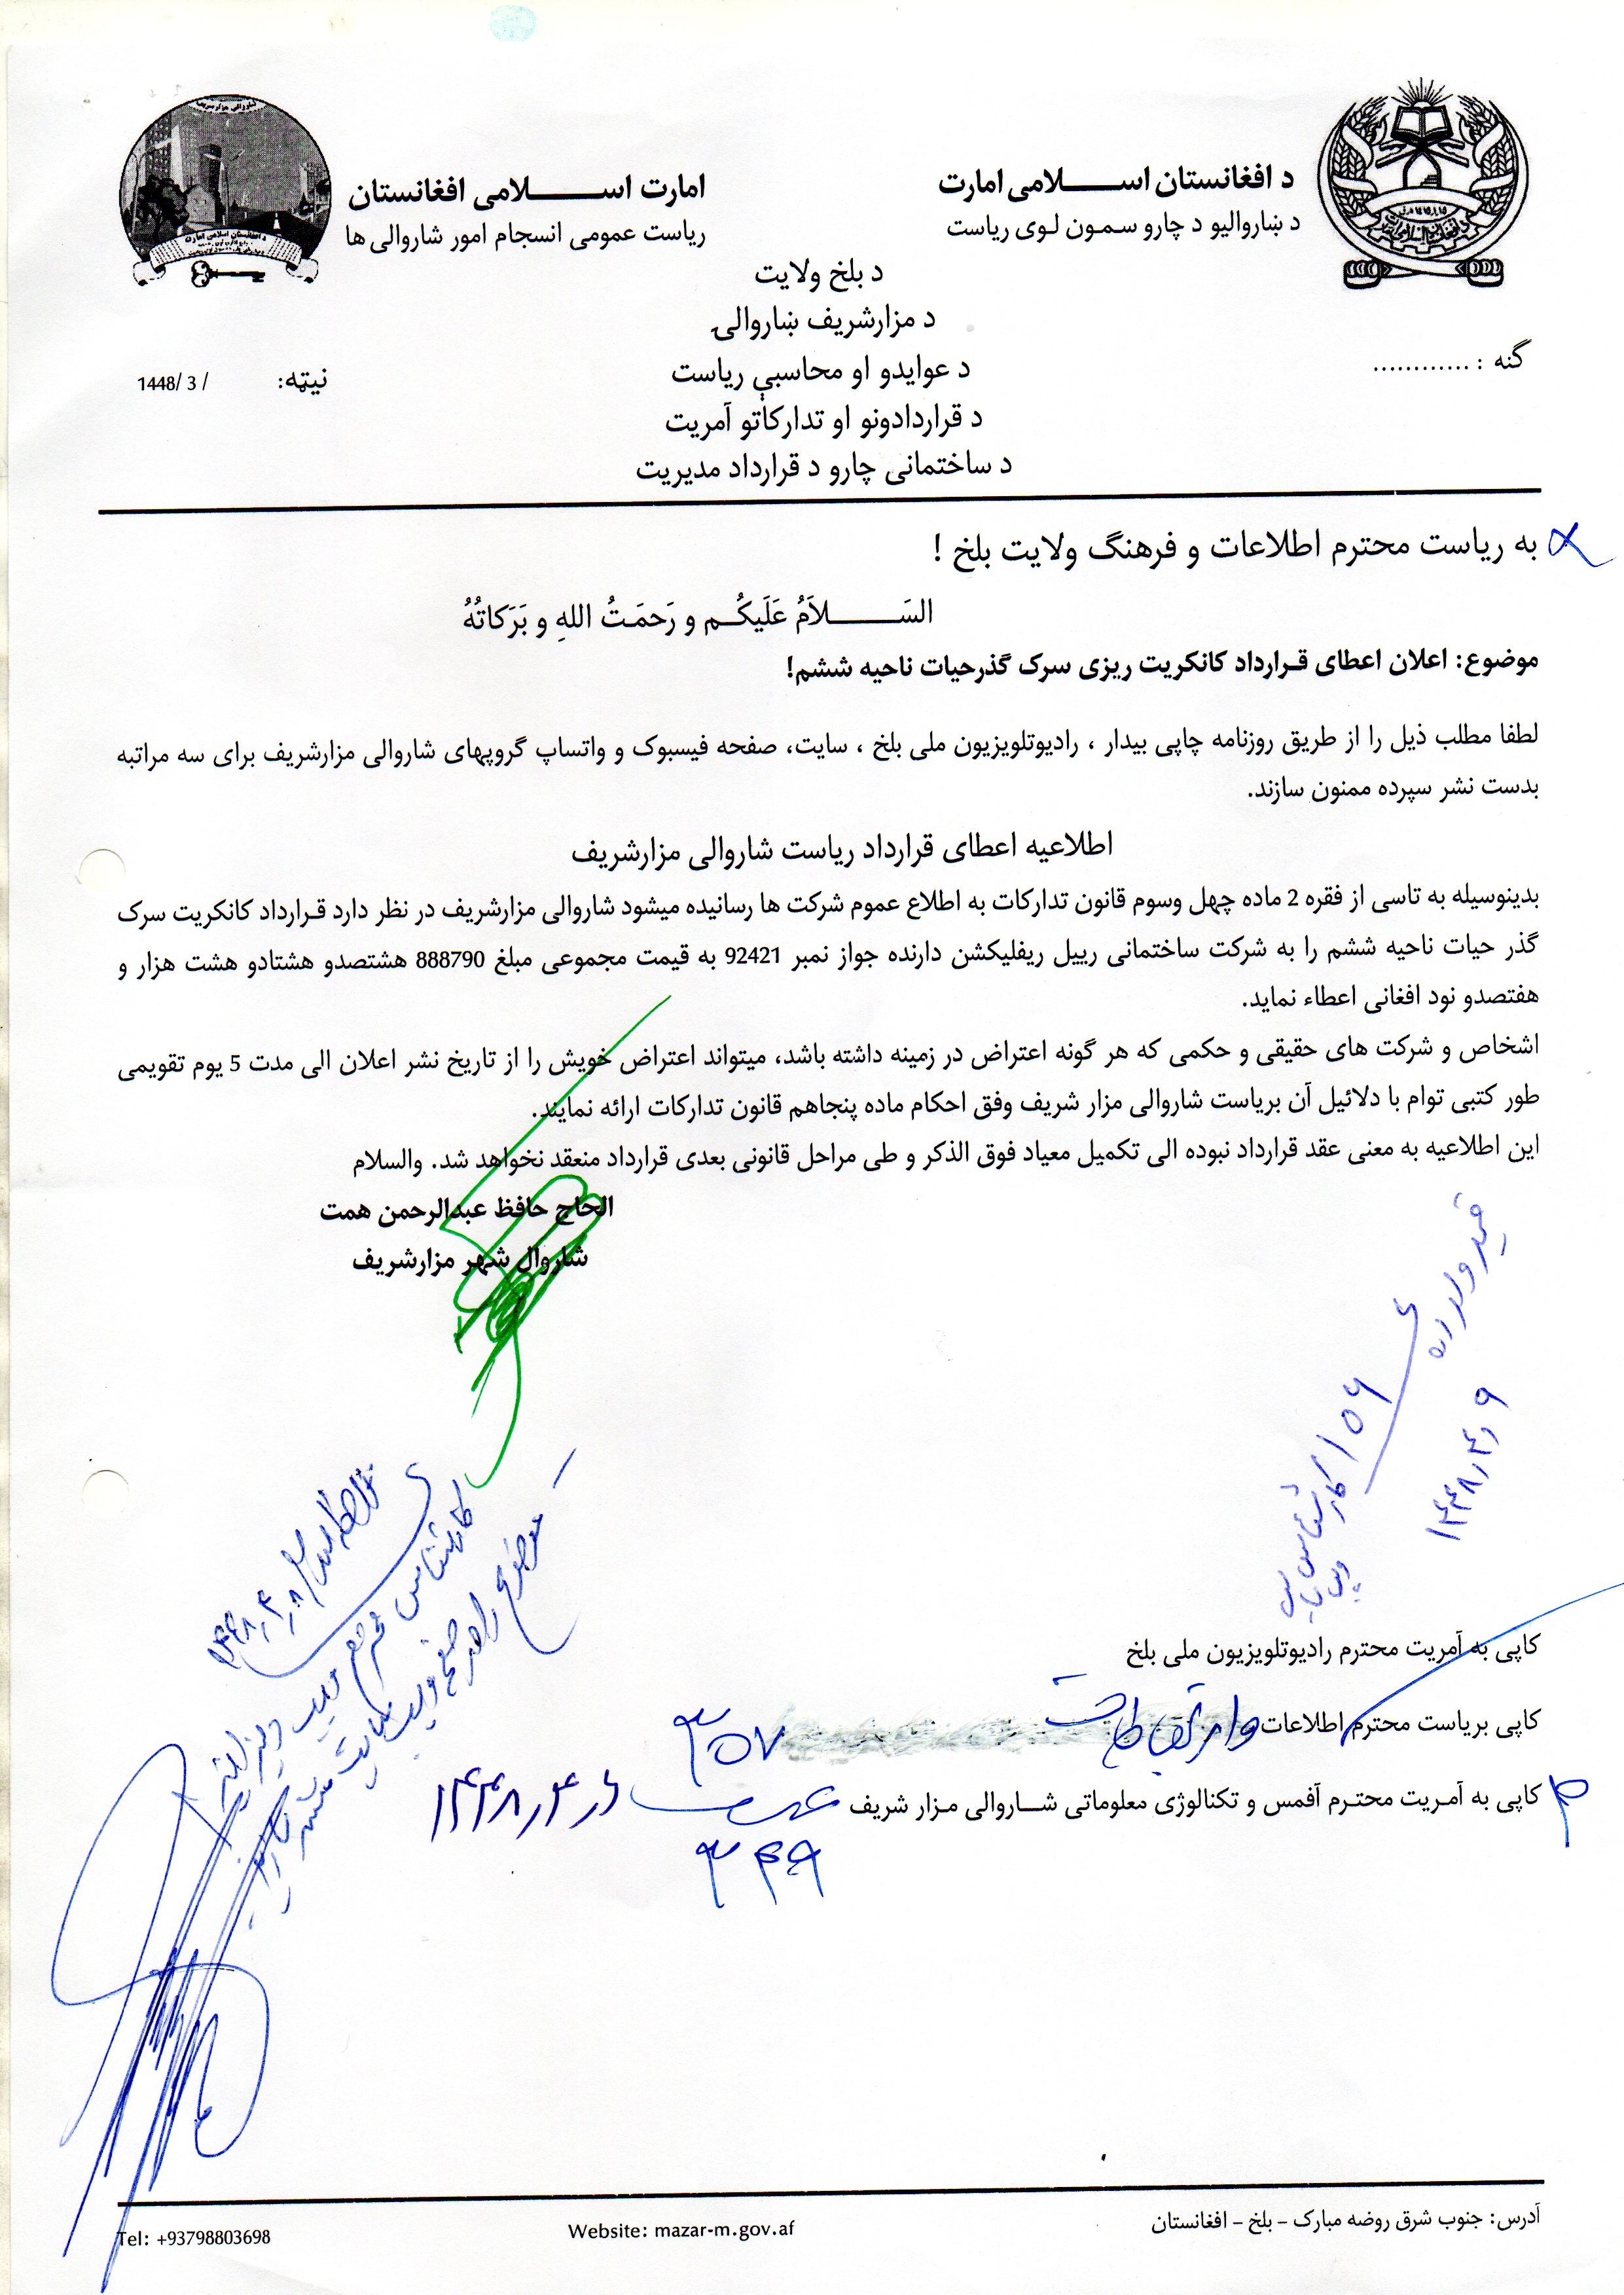 د افغانستان اسـلامی امارت
د ښاروالیو د چارو سمون لوی ریاست
امارت اسـلامی افغانستان
ریاست عمومی انسجام امور شاروالی ها
د بلخ ولایت
د مزارشریف ښاروالۍ
د عوایدو او محاسبې ریاست
د قراردادونو او تدارکاتو آمریت
د ساختمانی چارو د قرارداد مدیریت
گنه : ............
نیټه: / 3 /1448
به ریاست محترم اطلاعات و فرهنگ ولایت بلخ !
السَـلاَمُ عَلَیکُـم و رَحمَتُ اللهِ و بَرَکاتُهُ
موضوع: اعلان اعطای قـرارداد کانکریت ریزی سرک گذرحیات ناحیه ششم!
لطفا مطلب ذیل را از طریق روزنامه چاپی بیدار ، رادیوتلویزیون ملی بلخ ، سایت، صفحه فیسبوک و واتساپ گروپهای شاروالی مزارشریف برای سه مراتبه
بدست نشر سپرده ممنون سازند.
اطلاعیه اعطای قرارداد ریاست شاروالی مزارشریف
بدینوسیله به تاسی از فقره 2 ماده چهل وسوم قانون تدارکات به اطلاع عموم شرکت ها رسانیده میشود شاروالی مزارشریف در نظر دارد قـرارداد کانکریت سرک
گذر حیات ناحیه ششم را به شرکت ساختمانی رییل ریفلیکشن دارنده جواز نمبر 92421 به قیمت مجموعی مبلغ 888790 هشتصدو هشتادو هشت هزار و
هفتصدو نود افغانی اعطاء نماید.
اشخاص و شرکت های حقیقی و حکمی که هر گونه اعتراض در زمینه داشته باشد، میتواند اعتراض خویش را از تاریخ نشر اعلان الی مدت 5 یوم تقویمی
طور کتبی توام با دلائیل آن بریاست شاروالی مزار شریف وفق احکام ماده پنجاهم قانون تدارکات ارائه نمایند.
این اطلاعیه به معنی عقد قرارداد نبوده الی تکمیل معیاد فوق الذکر و طی مراحل قانونی بعدی قرارداد منعقد نخواهد شد. والسلام
الحاج حافظ عبدالرحمن همت
شاروال شهر مزارشریف
کاپی به آمریت محترم رادیوتلویزیون ملی بلخ
کاپی بریاست محترم اطلاعات
۳۵۷
کاپی به آمـریت محتـرم آفمس و تکنالوژی معلوماتی شـاروالی مـزار شریف
۳۴۹
آدرس: جنوب شرق روضه مبارک – بلخ – افغانستان
Website: mazar-m.gov.af
Tel: +93798803698